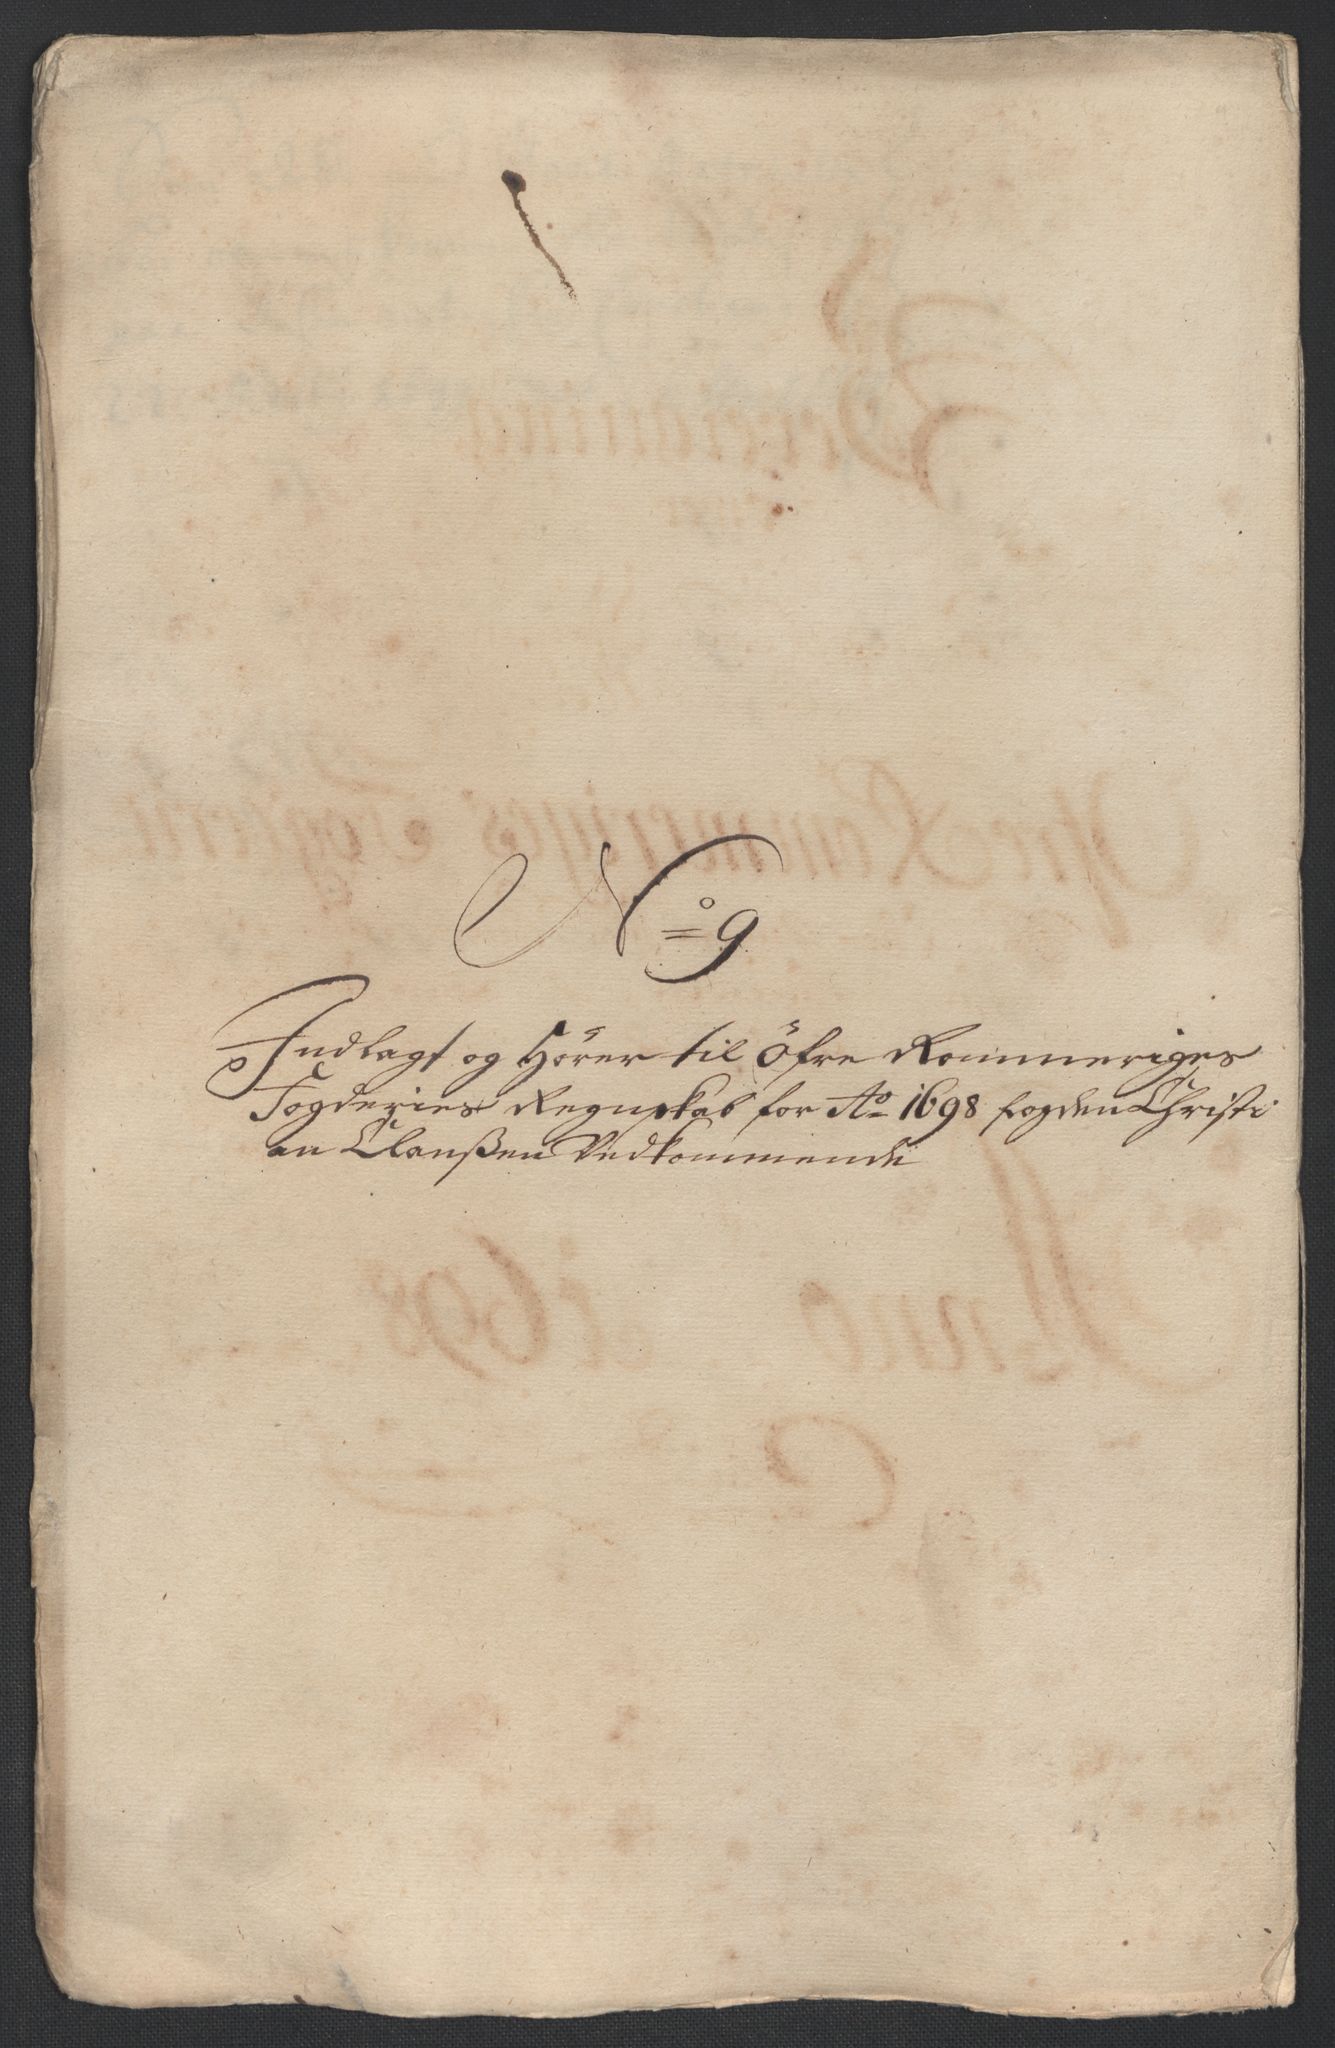 No 9
Indlagt og Hörer til Öfre Rommeriges
Fogderies Regnskab for Ao 1698 fogden Christi
an Clausßen Vedkommende